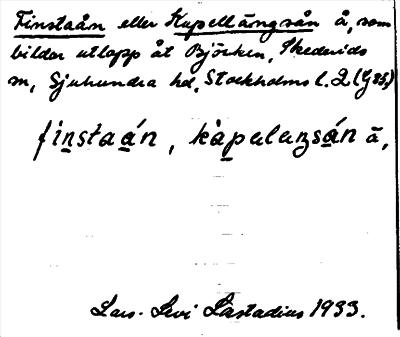 Finstaån eller Kapellängsån å, som
bildar utlopp åt Björken, Skederids
sn, Sjuhundra hd, Stockholms l. 2 (G 85,)
finstaán, kàpalaŋsán å,
Lars-Levi Læstadius 1933.